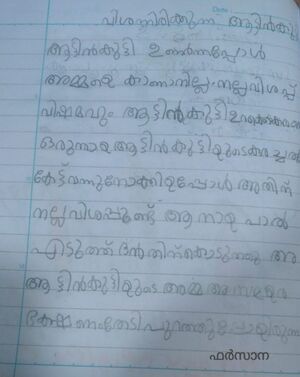 വിശന്നിരിക്കുന്ന ആട്ടിൻകുട്ടി
ആട്ടിൻകുട്ടി ഉണർന്നപ്പോൾ
അമ്മയെ കാണാനില്ല. നല്ല വിശപ്പ്
വിഷമവും ആട്ടിൻകുട്ടി ഉറക്കെ
ഒരു നായ ആട്ടിൻകുട്ടിയുടെ കരച്ചൽ
കേട്ട് വന്നു നോക്കിയപ്പോൾ അതിന്
നല്ല വിശപ്പുണ്ട് ആ നായ പാൽ
എടുത്ത് അതിന് കൊടുത്തു അ
ആട്ടിൻകുട്ടിയുടെ അമ്മ
ഭക്ഷണംതേടി പുറത്തുപോയിരുന്നു
ഫർസാന